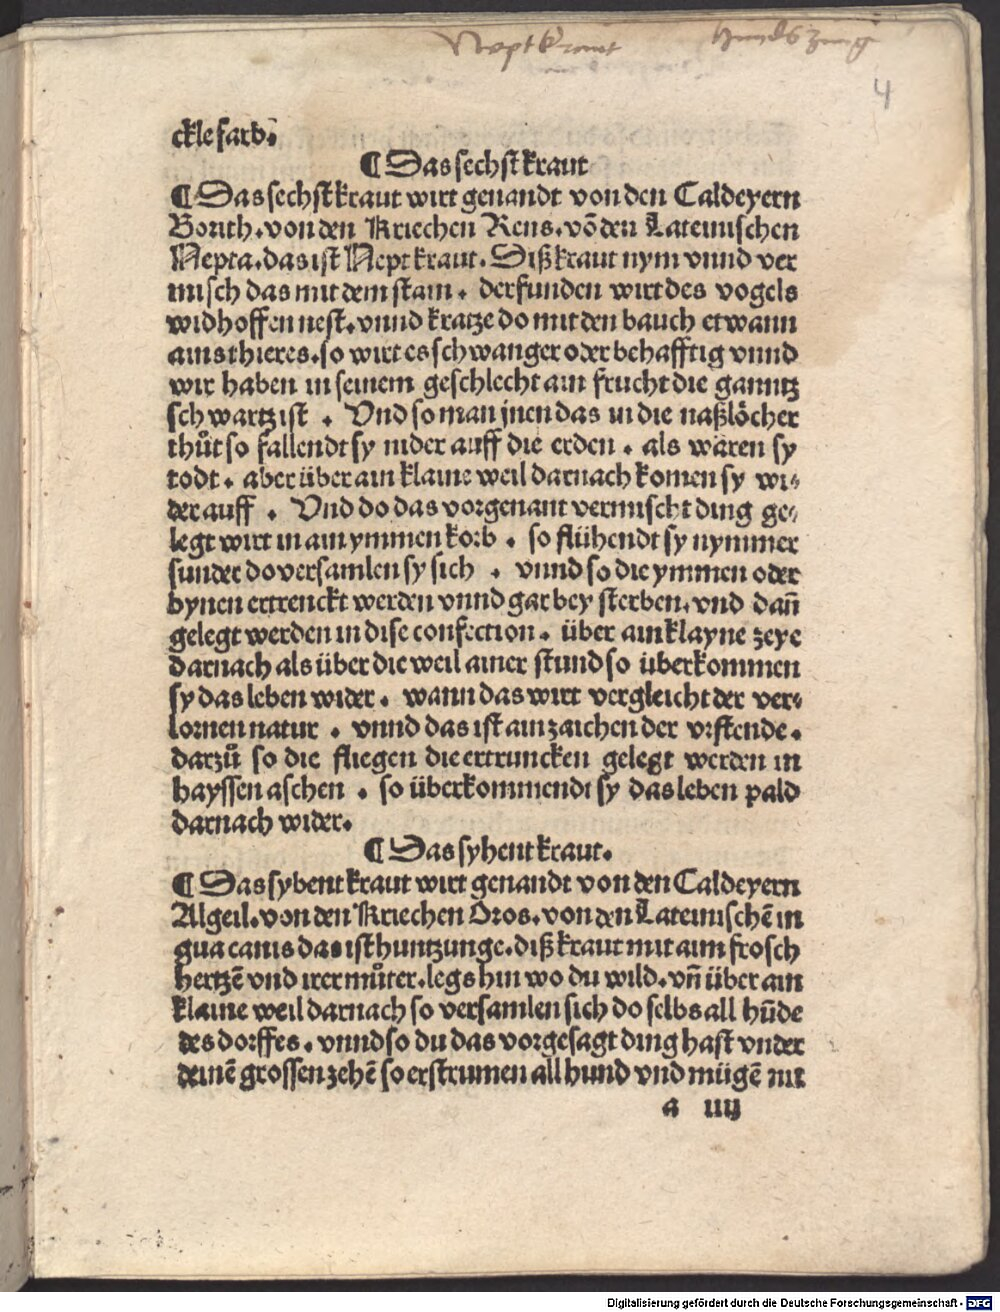 Neptkraut hundszung
4
ckle farb.
¶ Das sechst kraut
¶ Das sechst kraut wirt genandt von den Caldeyern
Borith. von den Kriechen Rens. võ den Lateinischen
Nepta. das ist Nept kraut. Diß kraut nym vnnd ver
misch das mit dem stain. der funden wirt des vogels
widhoffen nest. vnnd kratze do mit den bauch etwann
ains thieres. so wirt es schwanger oder behafftig vnnd
wir haben in seinem geschlecht ain frucht die ganntz
schwartz ist. Vnd so man jnen das in die naßlöcher
thůt so fallendt sy nider auff die erden. als wären sy
todt. aber über ain klaine weil darnach komen sy wi⸗
der auff. Vnd do das vorgenant vermischt ding ge⸗
legt wirt in ain ymmen korb. so flühendt sy nymmer
sunder do versamlen sy sich. vnnd so die ymmen oder
bynen ertrenckt werden vnnd gar bey sterben. vnd dañ
gelegt werden in dise confection. über ain klayne zeye
darnach als über die weil ainer stund so überkommen
sy das leben wider. wann das wirt vergleicht der ver⸗
lornen natur. vnnd das ist ain zaichen der vrstende.
darzů so die fliegen die ertruncken gelegt werden in
hayssen aschen. so überkommendt sy das leben pald
darnach wider.
¶ Das sybent kraut.
¶ Das sybent kraut wirt genandt von den Caldeyern
Algeil. von den Kriechen Oros. von den Lateinischē in
gua canis das ist huntzunge. diß kraut mit aim frosch
hertzē vnd irer můter. legs hin wo du wild. vñ über ain
klaine weil darnach so versamlen sich do selbs all hūde
des dorffes. vnnd so du das vorgesagt ding hast vnder
deinē grossen zehē so erstrumen all hund vnd mügē nit
a iiij
Digitalisierung gefördert durch die Deutsche Forschungsgemeinschaft - DFG